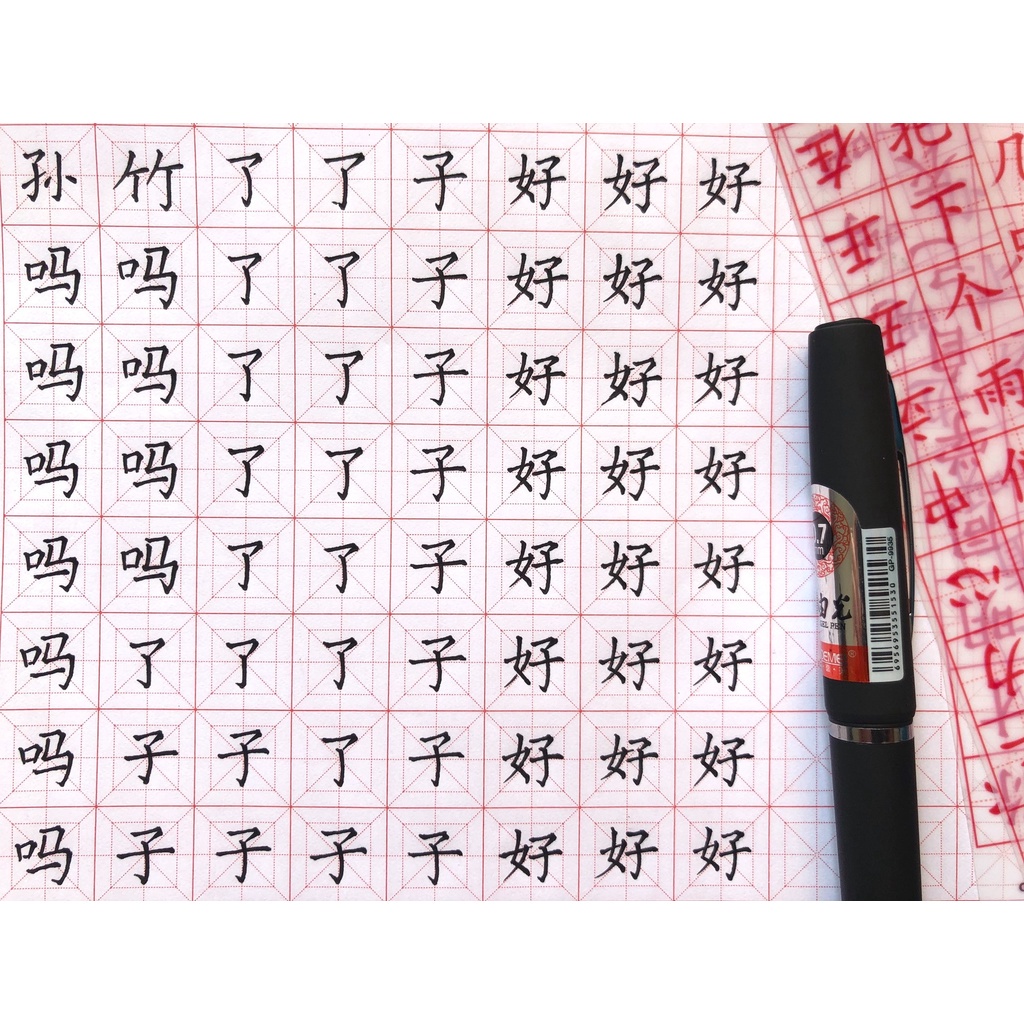 孙竹了了子好好好
吗吗了了子好好好
吗吗了了子好好好
吗吗了了子好好好
吗吗了了子好好好
吗了了了子好好好
吗子子了子好好好
吗子子子子好好好
在
把
下
个
雨
中
心
.7
GEL PEN
GP-9936
6956953551530